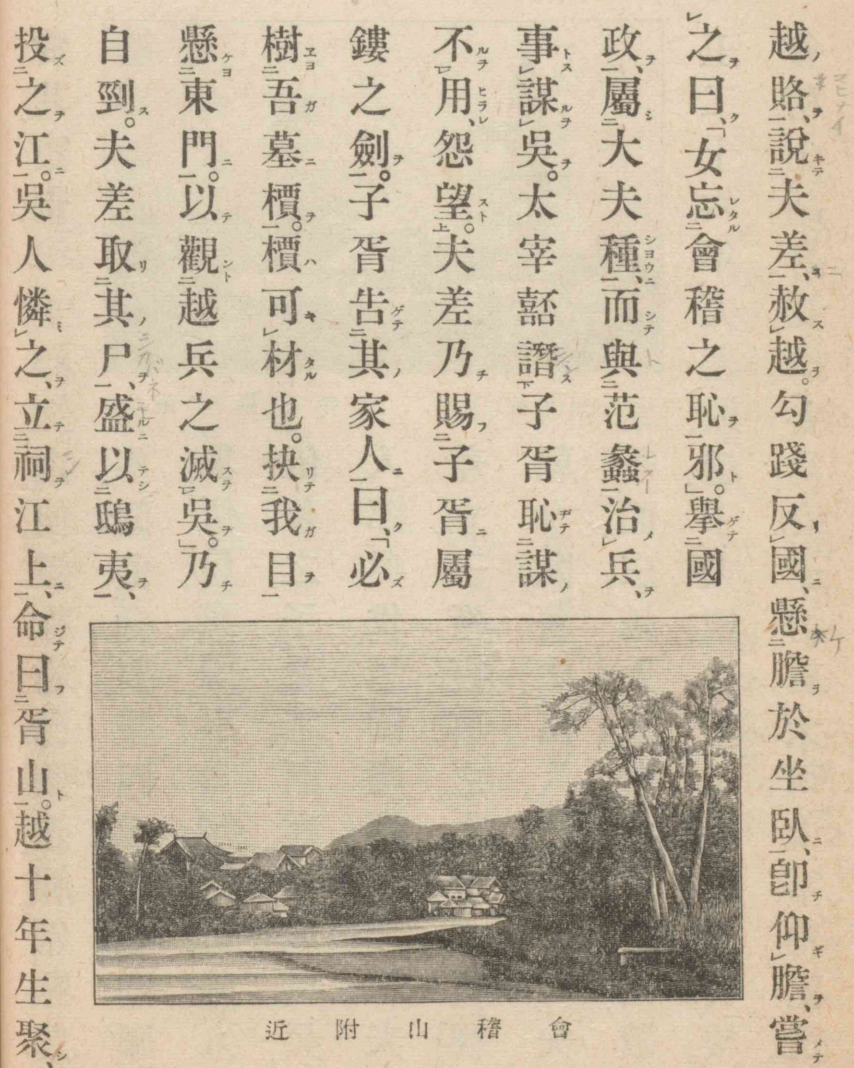 越賂說夫差、赦越。勾踐反國、懸膽於坐臥、卽仰膽、嘗
之曰、「女忘會稽之恥邪。」擧國
政、屬大夫種、而與范蠡治兵、
事謀吳。太宰嚭譖子胥恥謀
不用、怨望。夫差乃賜子胥屬
鏤之劍。子胥告其家人曰、「必
樹吾墓檟。檟可材也。抉我目
懸東門。以觀越兵之滅吳。」乃
自剄。夫差取其尸、盛以鴟夷、
投之江。吳人憐之、立祠江上、命曰胥山。越十年生聚、
會稽山附近